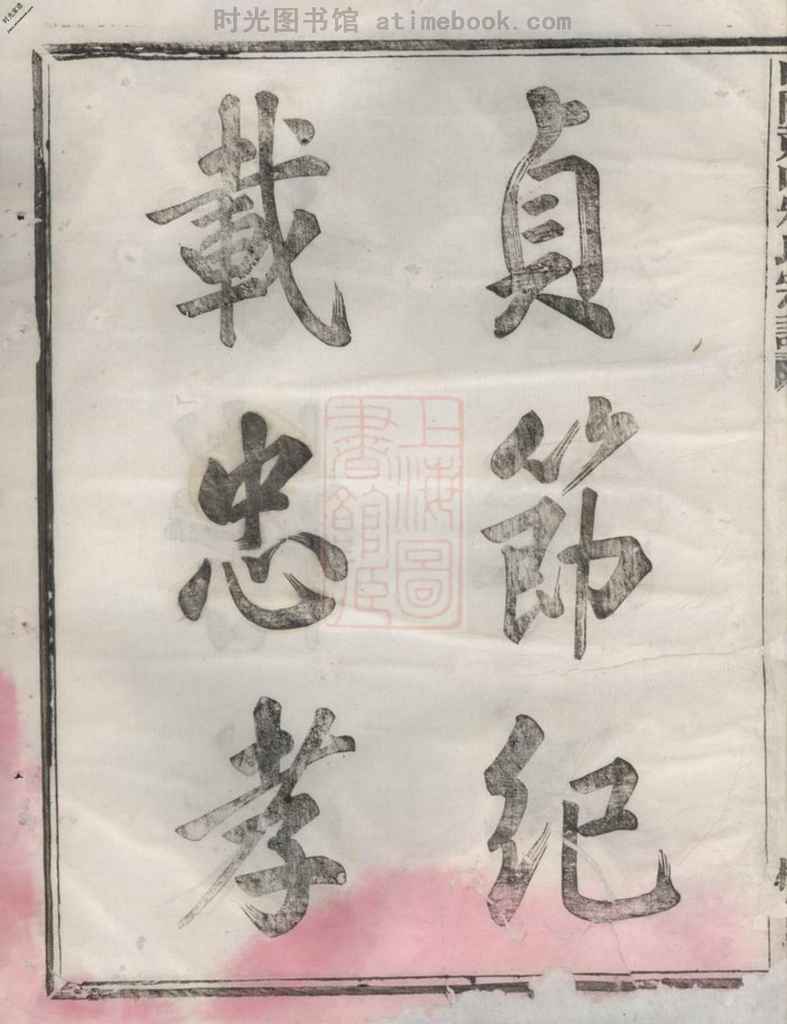 时光图书馆 atimebook.com
貞節紀
載忠孝
上海圖
書館臧